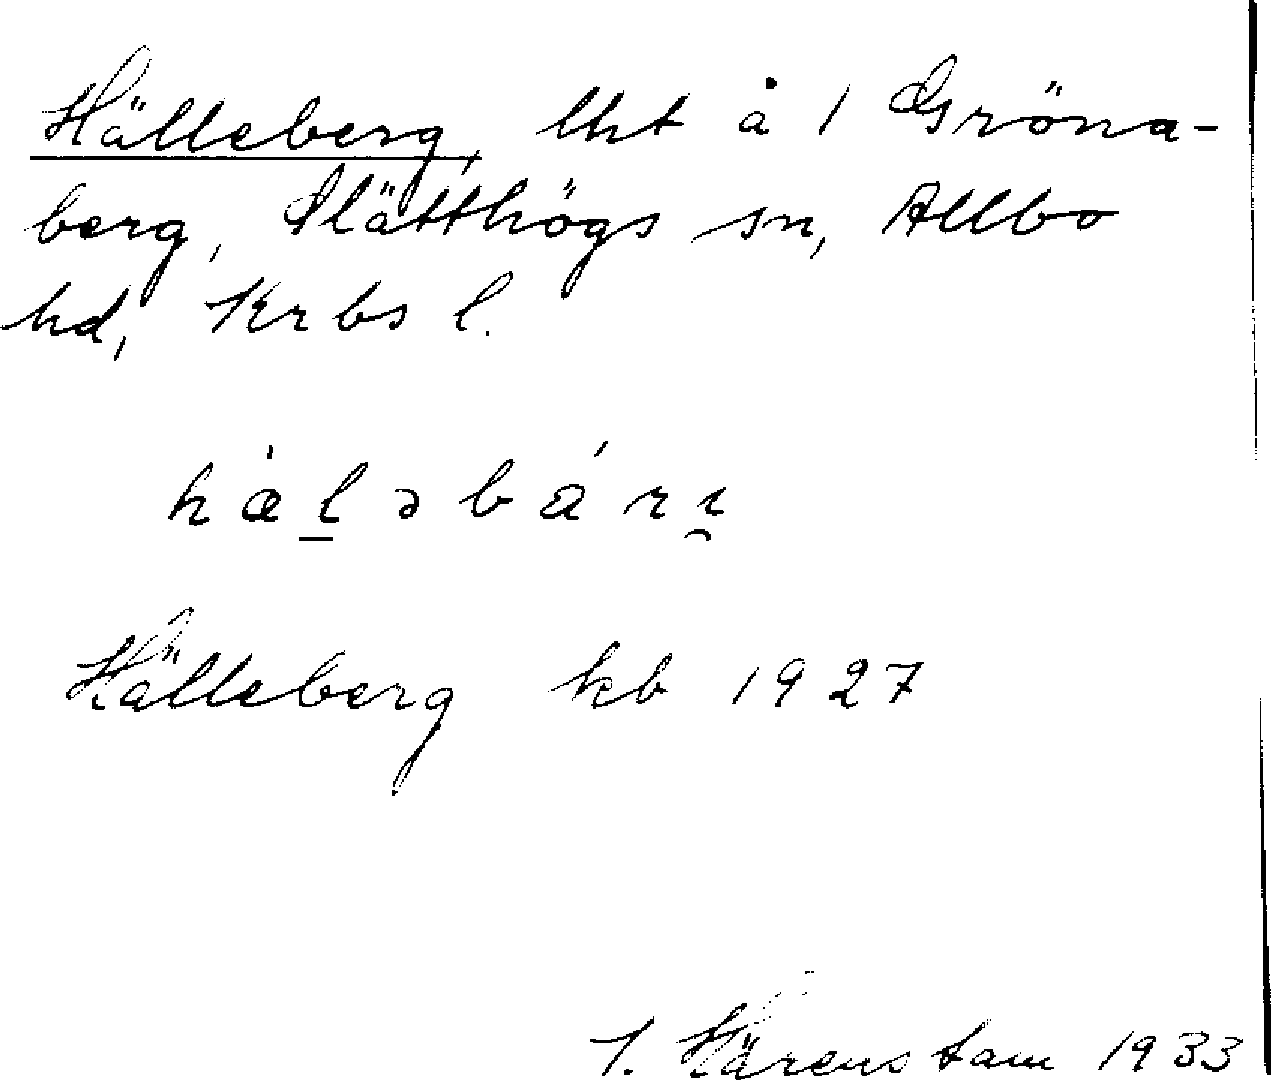 Hälleberg, lht å 1 Gröna-
berg, Slätthögs sn, Allbo
hd, Krbs l.
hȧl̲əbárɪ̯
Hälleberg kb 1927
I. Härenstam 1933